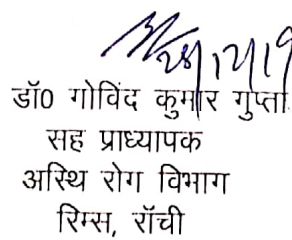 28/12/19
डॉ0 गोविंद कुमार गुप्ता
सह प्राध्यापक
अस्थि रोग विभाग
रिम्स, रॉची